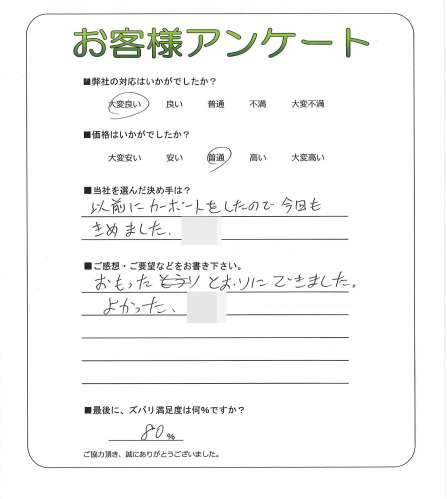 お客様アンケート
■弊社の対応はいかがでしたか?
大変良い 良い 普通 不満 大変不満
■価格はいかがでしたか?
大変安い 安い 普通 高い 大変高い
■当社を選んだ決め手は?
以前にカーポートをしたので今回も
きめました.
■ご感想・ご要望などをお書き下さい。
おもった とおりにできました。
よかった、
■最後に、ズバリ満足度は何%ですか?
80 %
ご協力頂き、誠にありがとうございました。